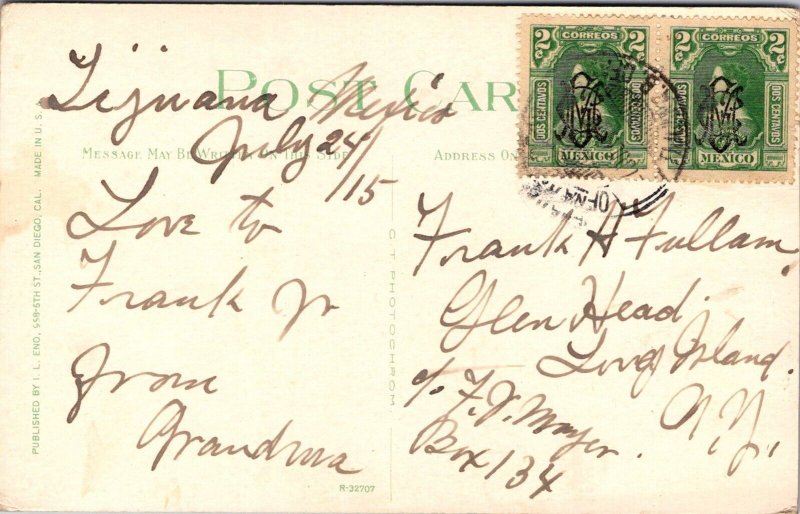 POST CAR
MESSAGE MAY BE WRITTEN ON THIS SIDE
ADDRESS ON
Tijuana Mexico
July 24/15
Love to
Frank Jr
from
Grandma
Frank H Fullam
Glen Head.
Long Island.
N.Y.
c/o F. D. Mayer.
Box 134
2 CORREOS 2
DOS CENTAVOS
DOS CENTAVOS
MEXICO
2 CORREOS 2
DOS CENTAVOS
DOS CENTAVOS
MEXICO
PUBLISHED BY I. L. ENO, 958-6TH ST., SAN DIEGO, CAL. MADE IN U.S.A.
C T PHOTOCHROM
R-32707